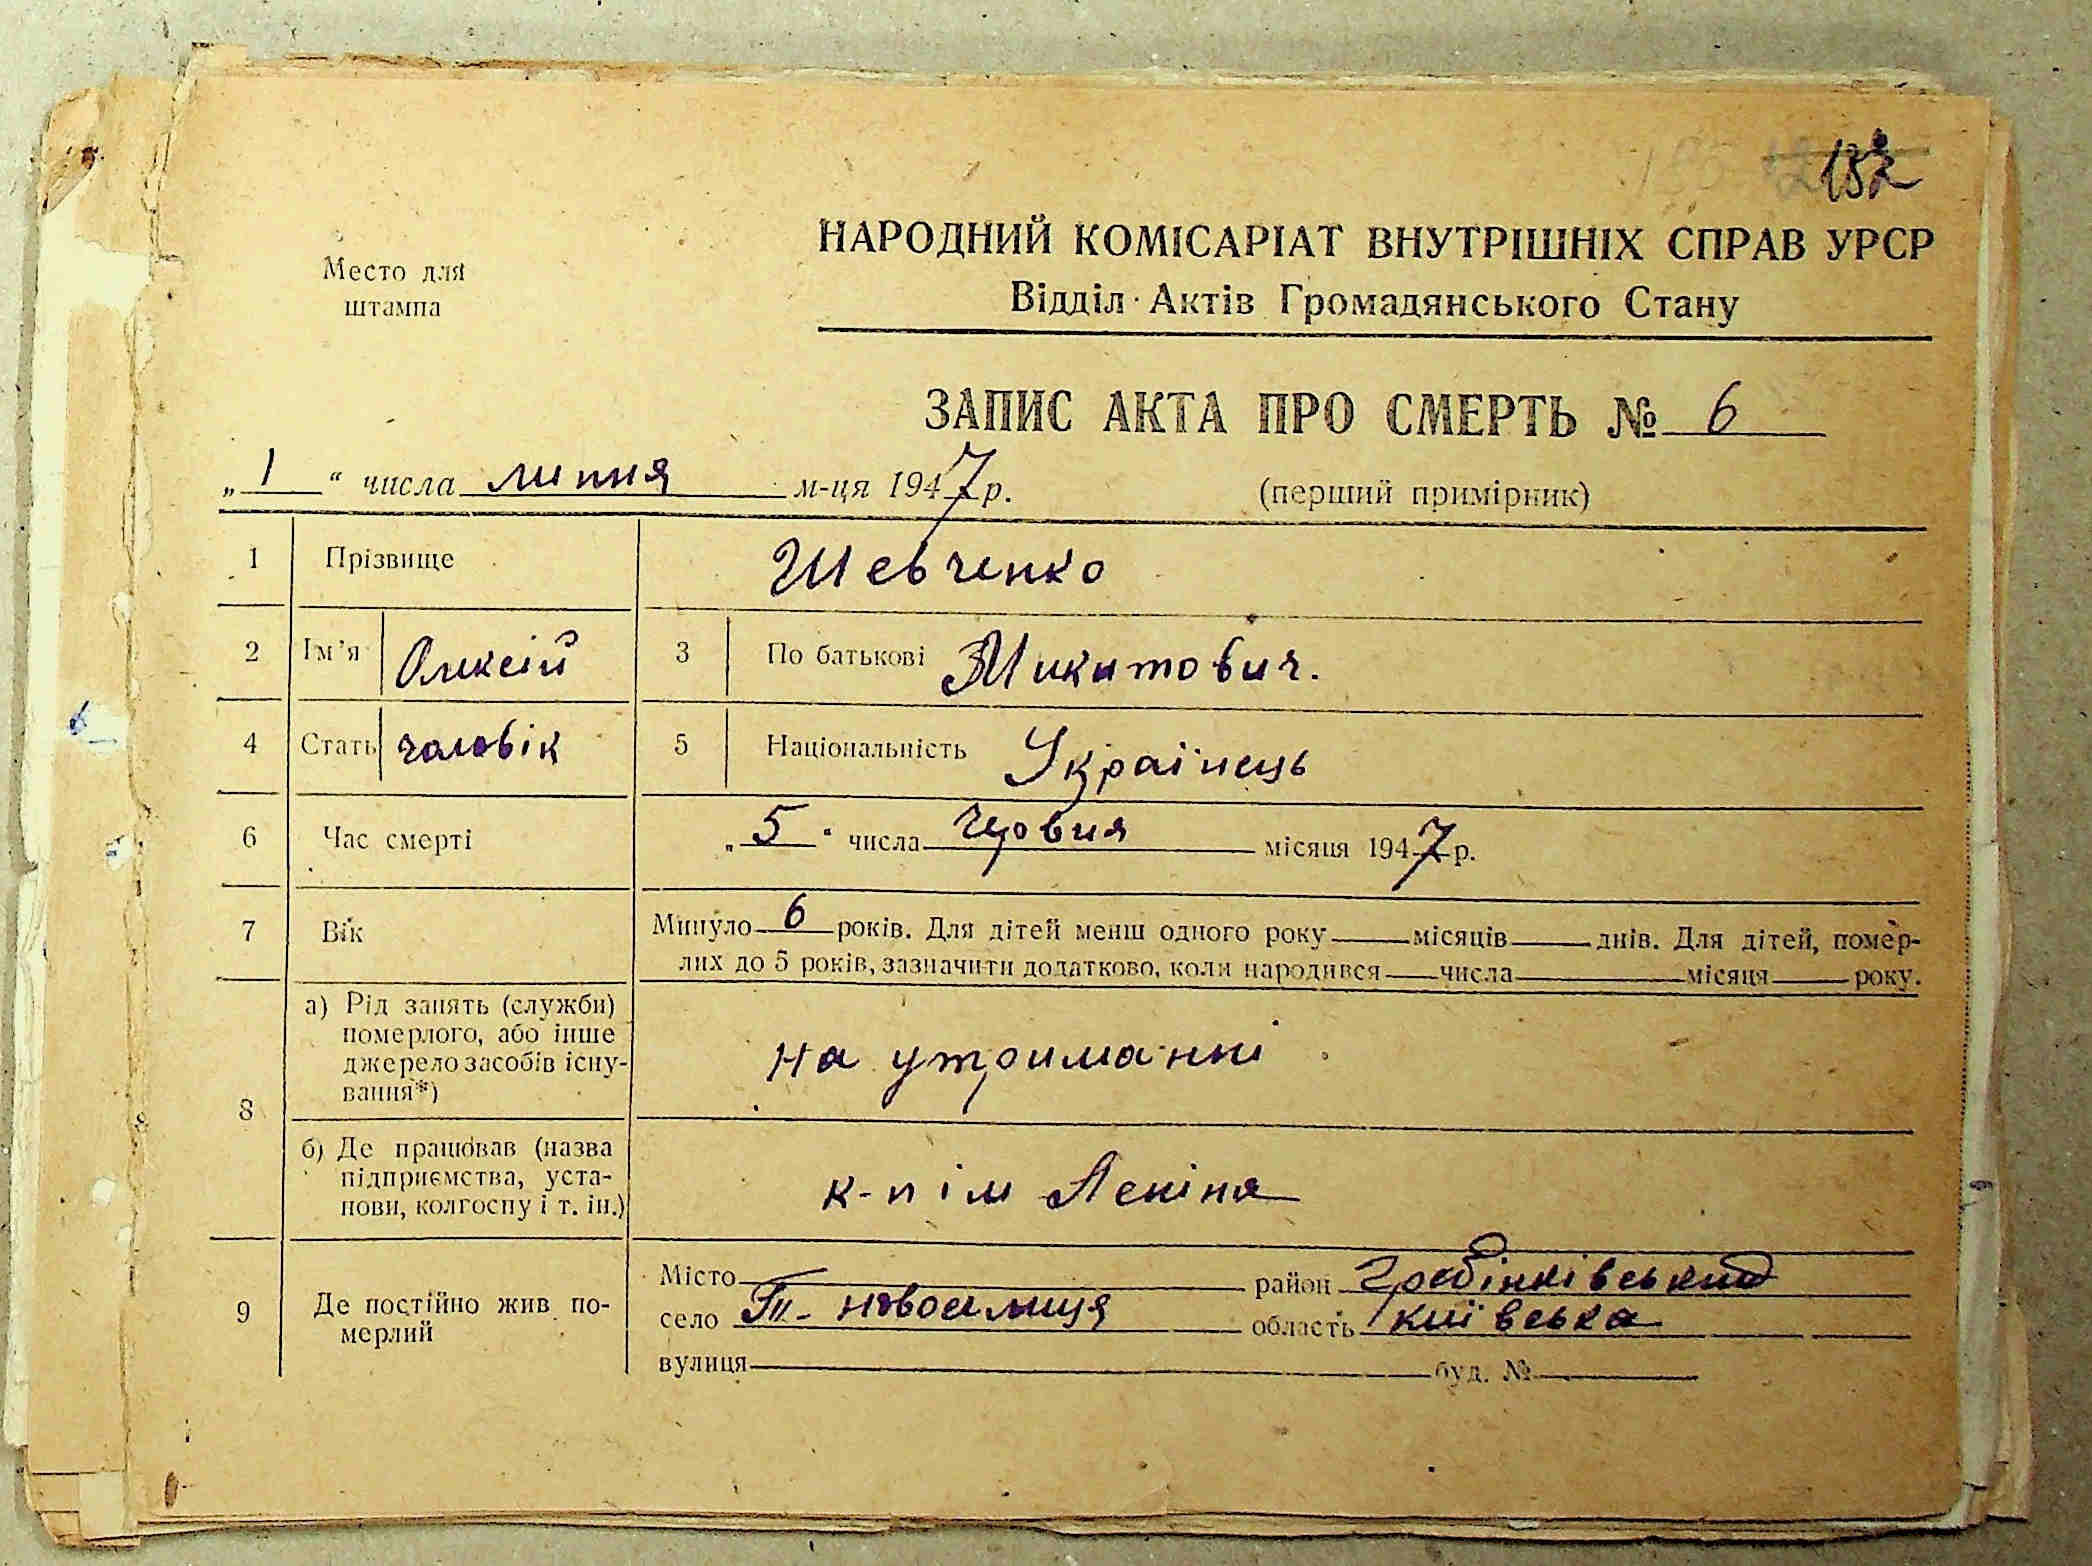 132
НАРОДНИЙ КОМІСАРІАТ ВНУТРІШНІХ СПРАВ УРСР
Место для
штампа
Відділ Актів Громадянського Стану
ЗАПИС АКТА ПРО СМЕРТЬ № 6
„1“ числа липня м-ця 1947 р. (перший примірник)
1 Прізвище Шевченко
2 Ім'я Олексій 3 По батькові Микитович.
4 Стать чоловік 5 Національність Українець
6 Час смерті „5“ числа Червня місяця 1947 р.
7 Вік Минуло 6 років. Для дітей менш одного року місяців днів. Для дітей, помер-
лих до 5 років, зазначити додатково, коли народився числа місяця року.
8 а) Рід занять (служби)
померлого, або інше
джерело засобів існу-
вання*)
на утриманні
б) Де працював (назва
підприємства, уста-
нови, колгоспу і т. ін.)
к-п ім Леніна
9 Де постійно жив по-
мерлий
Місто район Гребінківський
село новоселиця область київська
вулиця буд. №
6